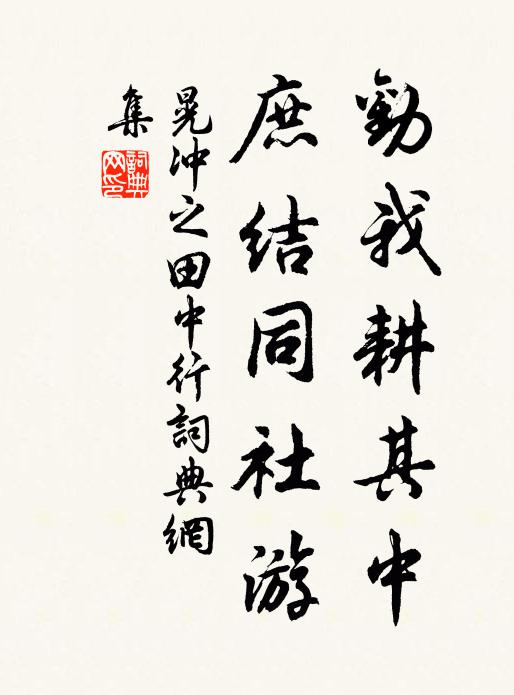 勸我耕其中
庶结同社游
晁冲之田中行詞典網
集
詞典
网印